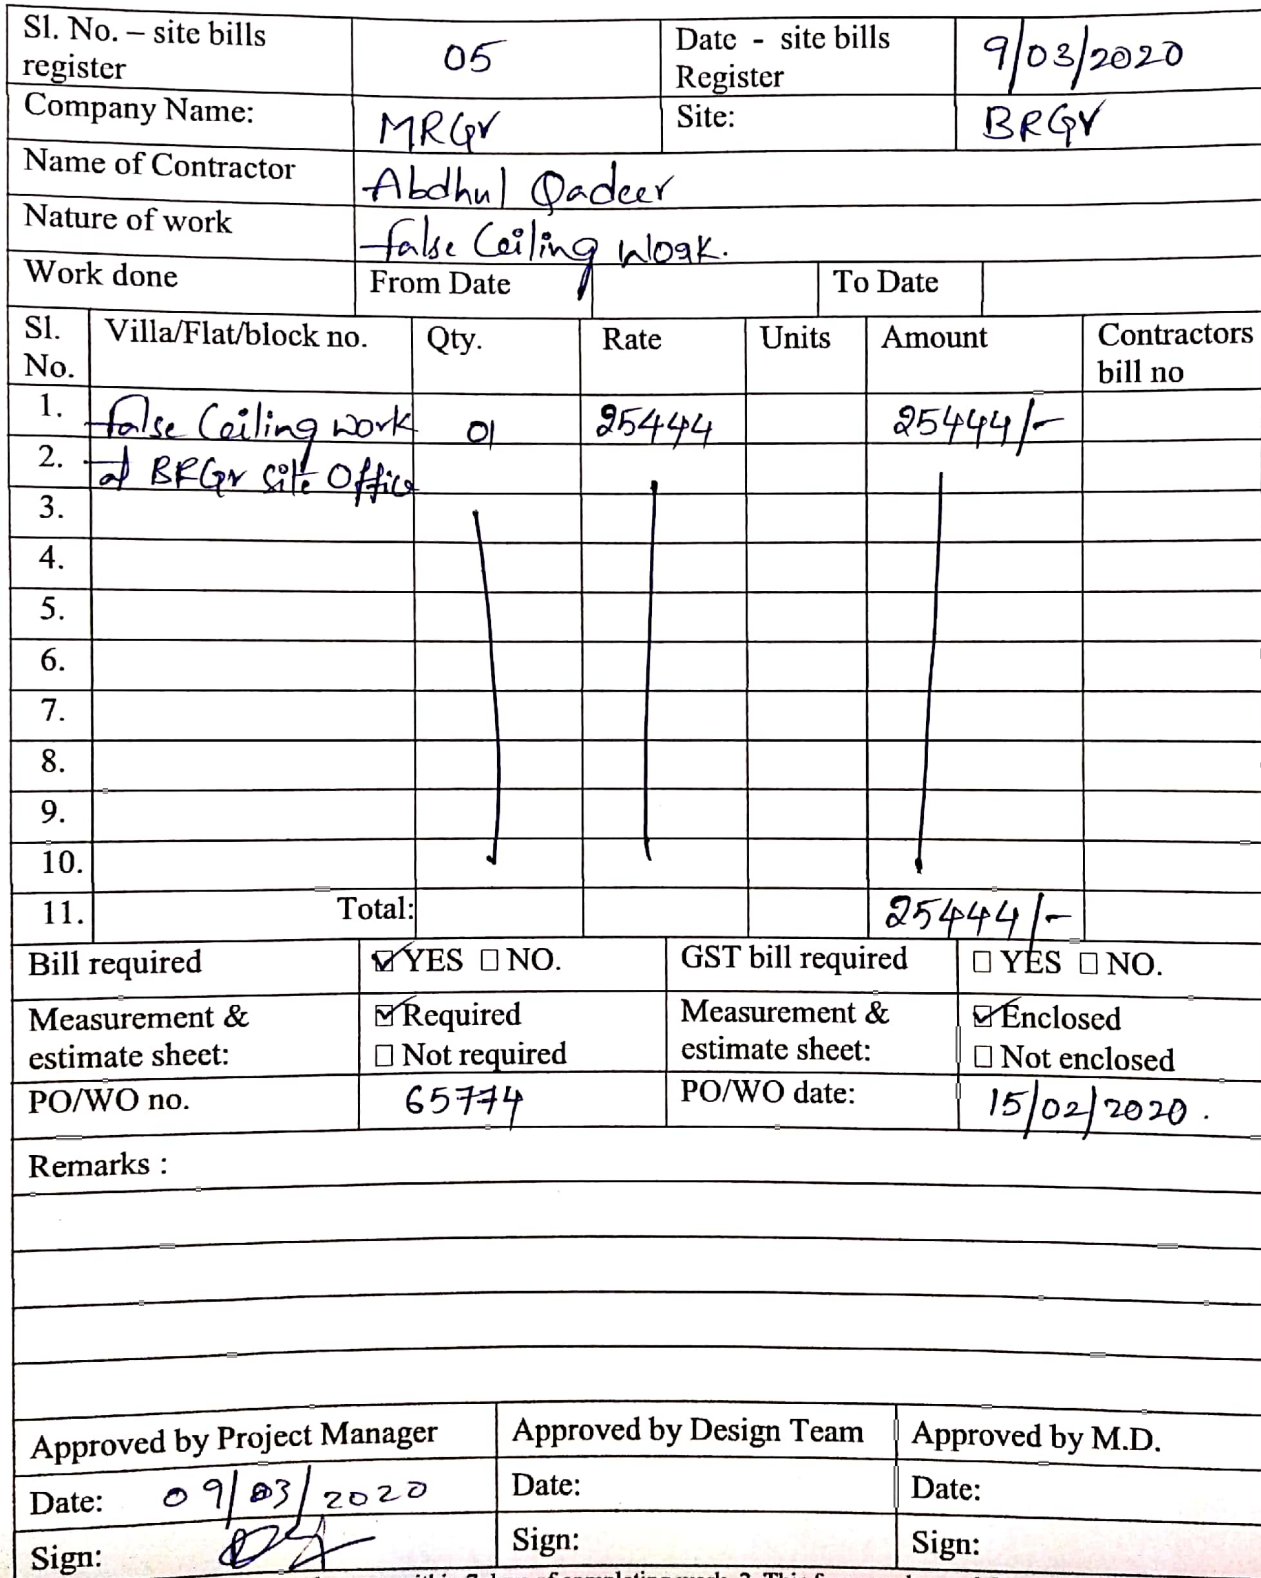 Sl. No. – site bills register 05 Date - site bills Register 9/03/2020
Company Name: MRGV Site: BRGV
Name of Contractor Abdhul Qadeer
Nature of work false Ceiling Work.
Work done From Date To Date
Sl. No. Villa/Flat/block no. Qty. Rate Units Amount Contractors bill no
1. false Ceiling work 01 25444 25444/-
2. at BRGV site Office
3.
4.
5.
6.
7.
8.
9.
10.
11. Total: 25444/-
Bill required ☑ YES ☐ NO. GST bill required ☐ YES ☐ NO.
Measurement & estimate sheet: ☑ Required ☐ Not required Measurement & estimate sheet: ☑ Enclosed ☐ Not enclosed
PO/WO no. 65774 PO/WO date: 15/02/2020.
Remarks :
Approved by Project Manager Approved by Design Team Approved by M.D.
Date: 09/03/2020 Date: Date:
Sign: Sign: Sign: